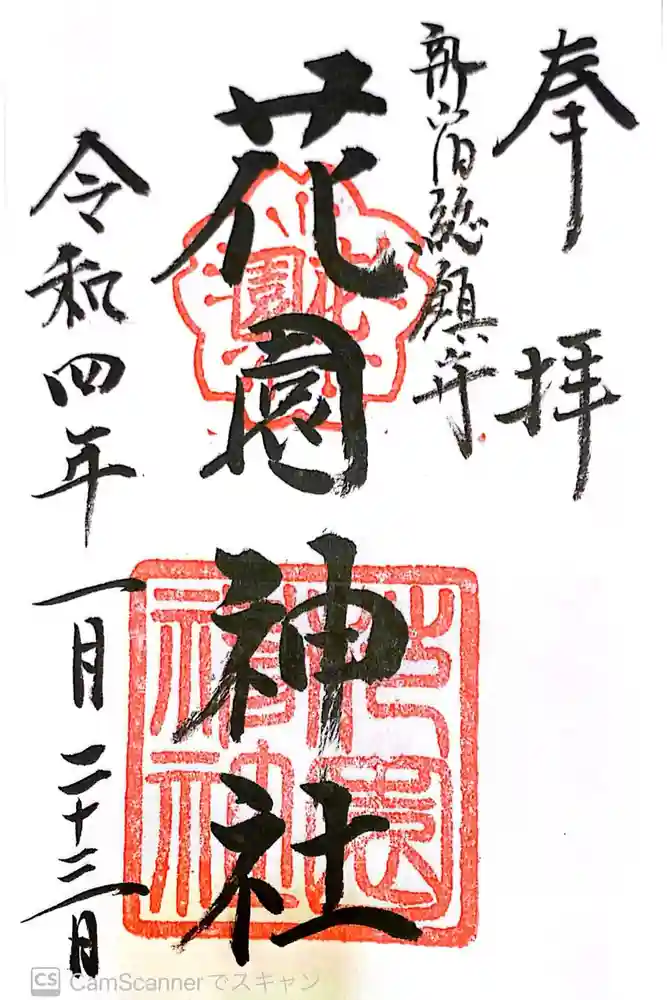 奉拝
新宿総鎮守
花園神社
花園
花園神社
令和四年一月二十三日
CS CamScannerでスキャン